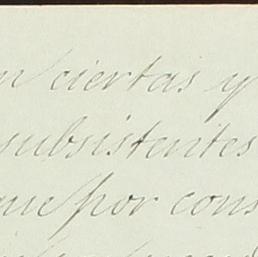 n ciertas y
subsistentes
que por cons